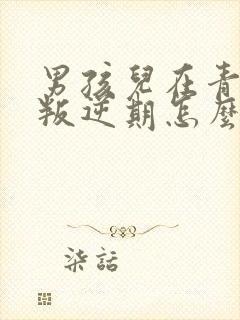 男孩兒在青
叛逆期怎麼
柒話